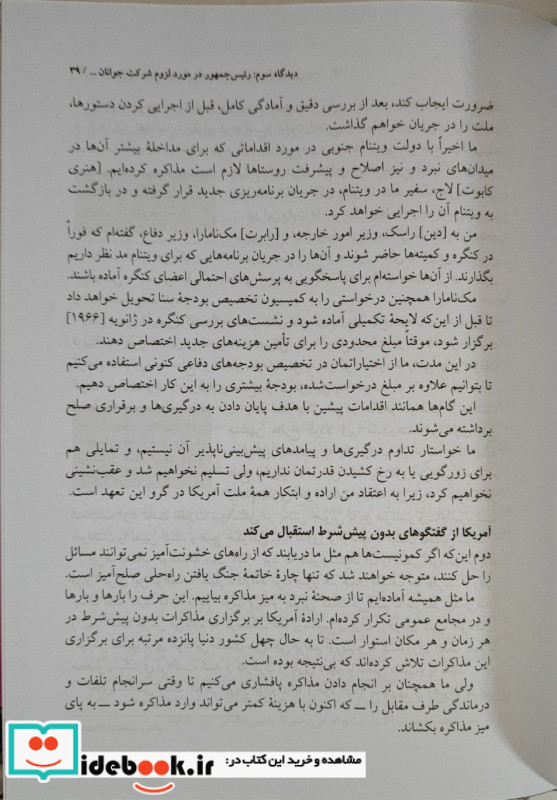 دیدگاه سوم: رئیس‌جمهور در مورد لزوم شرکت جوانان ... / ۳۹
ضرورت ایجاب کند، بعد از بررسی دقیق و آمادگی کامل، قبل از اجرایی کردن دستورها،
ملت را در جریان خواهم گذاشت.
ما اخیراً با دولت ویتنام جنوبی در مورد اقداماتی که برای مداخلهٔ بیشتر آن‌ها در
میدان‌های نبرد و نیز اصلاح و پیشرفت روستاها لازم است مذاکره کرده‌ایم. [هنری
کابوت] لاج، سفیر ما در ویتنام، در جریان برنامه‌ریزی جدید قرار گرفته و در بازگشت
به ویتنام آن را اجرایی خواهد کرد.
من به [دین] راسک، وزیر امور خارجه، و [رابرت] مک‌نامارا، وزیر دفاع، گفته‌ام که فوراً
در کنگره و کمیته‌ها حاضر شوند و آن‌ها را در جریان برنامه‌هایی که برای ویتنام مد نظر داریم
بگذارند. از آن‌ها خواسته‌ام برای پاسخگویی به پرسش‌های احتمالی اعضای کنگره آماده باشند.
مک‌نامارا همچنین درخواستی را به کمیسیون تخصیص بودجهٔ سنا تحویل خواهد داد
تا قبل از این‌که لایحهٔ تکمیلی آماده شود و نشست‌های بررسی کنگره در ژانویه [۱۹۶۶]
برگزار شود، موقتاً مبلغ محدودی را برای تأمین هزینه‌های جدید اختصاص دهند.
در این مدت، ما از اختیاراتمان در تخصیص بودجه‌های دفاعی کنونی استفاده می‌کنیم
تا بتوانیم علاوه بر مبلغ درخواست‌شده، بودجهٔ بیشتری را به این کار اختصاص دهیم.
این گام‌ها همانند اقدامات پیشین با هدف پایان دادن به درگیری‌ها و برقراری صلح
برداشته می‌شوند.
ما خواستار تداوم درگیری‌ها و پیامدهای پیش‌بینی‌ناپذیر آن نیستیم، و تمایلی هم
برای زورگویی یا به رخ کشیدن قدرتمان نداریم، ولی تسلیم نخواهیم شد و عقب‌نشینی
نخواهیم کرد، زیرا به اعتقاد من اراده و ابتکار همهٔ ملت آمریکا در گرو این تعهد است.
آمریکا از گفتگوهای بدون پیش‌شرط استقبال می‌کند
دوم این‌که اگر کمونیست‌ها هم مثل ما دریابند که از راه‌های خشونت‌آمیز نمی‌توانند مسائل
را حل کنند، متوجه خواهند شد که تنها چارهٔ خاتمهٔ جنگ یافتن راه‌حلی صلح‌آمیز است.
ما مثل همیشه آماده‌ایم تا از صحنهٔ نبرد به میز مذاکره بیاییم. این حرف را بارها و بارها
و در مجامع عمومی تکرار کرده‌ام. ارادهٔ آمریکا بر برگزاری مذاکرات بدون پیش‌شرط در
هر زمان و هر مکان استوار است. تا به حال چهل کشور دنیا پانزده مرتبه برای برگزاری
این مذاکرات تلاش کرده‌اند که بی‌نتیجه بوده است.
ولی ما همچنان بر انجام دادن مذاکره پافشاری می‌کنیم تا وقتی سرانجام تلفات و
درماندگی طرف مقابل را ــ که اکنون با هزینهٔ کمتر می‌تواند وارد مذاکره شود ــ به پای
میز مذاکره بکشاند.
مشاهده و خرید این کتاب در:
idebook.ir